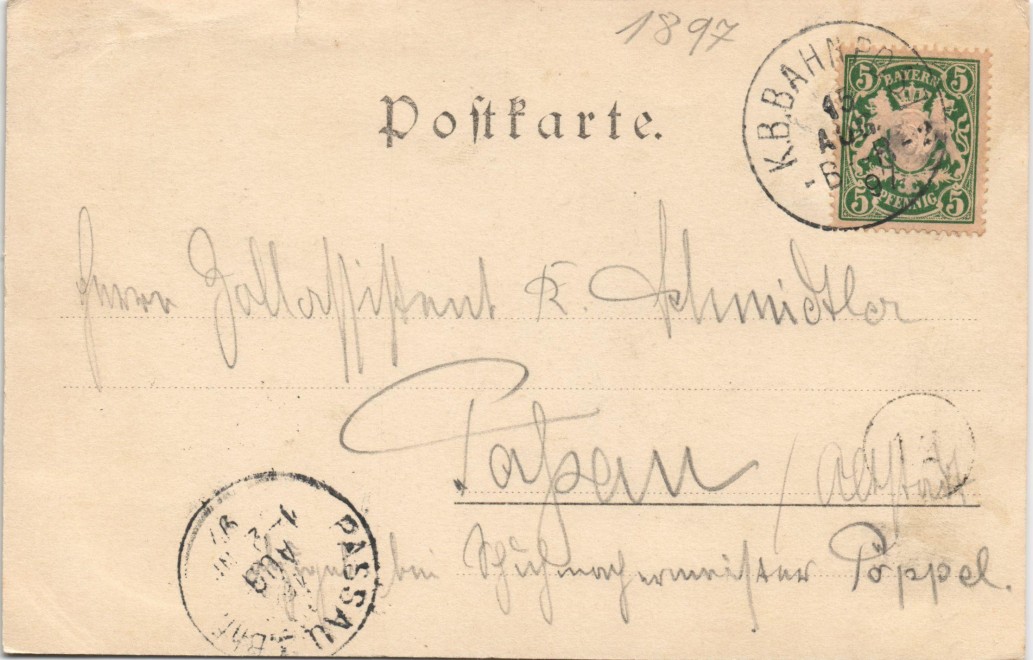 1897
K.B.BAHNPO
15
AUG
BAYERN
5 5
5 PFENNIG 5
Postkarte.
Herrn Zollassistent K. Schmidtler
Passau / Altstadt
bei Schuhmachermeister Pöppel.
PASSAU
AUG
97